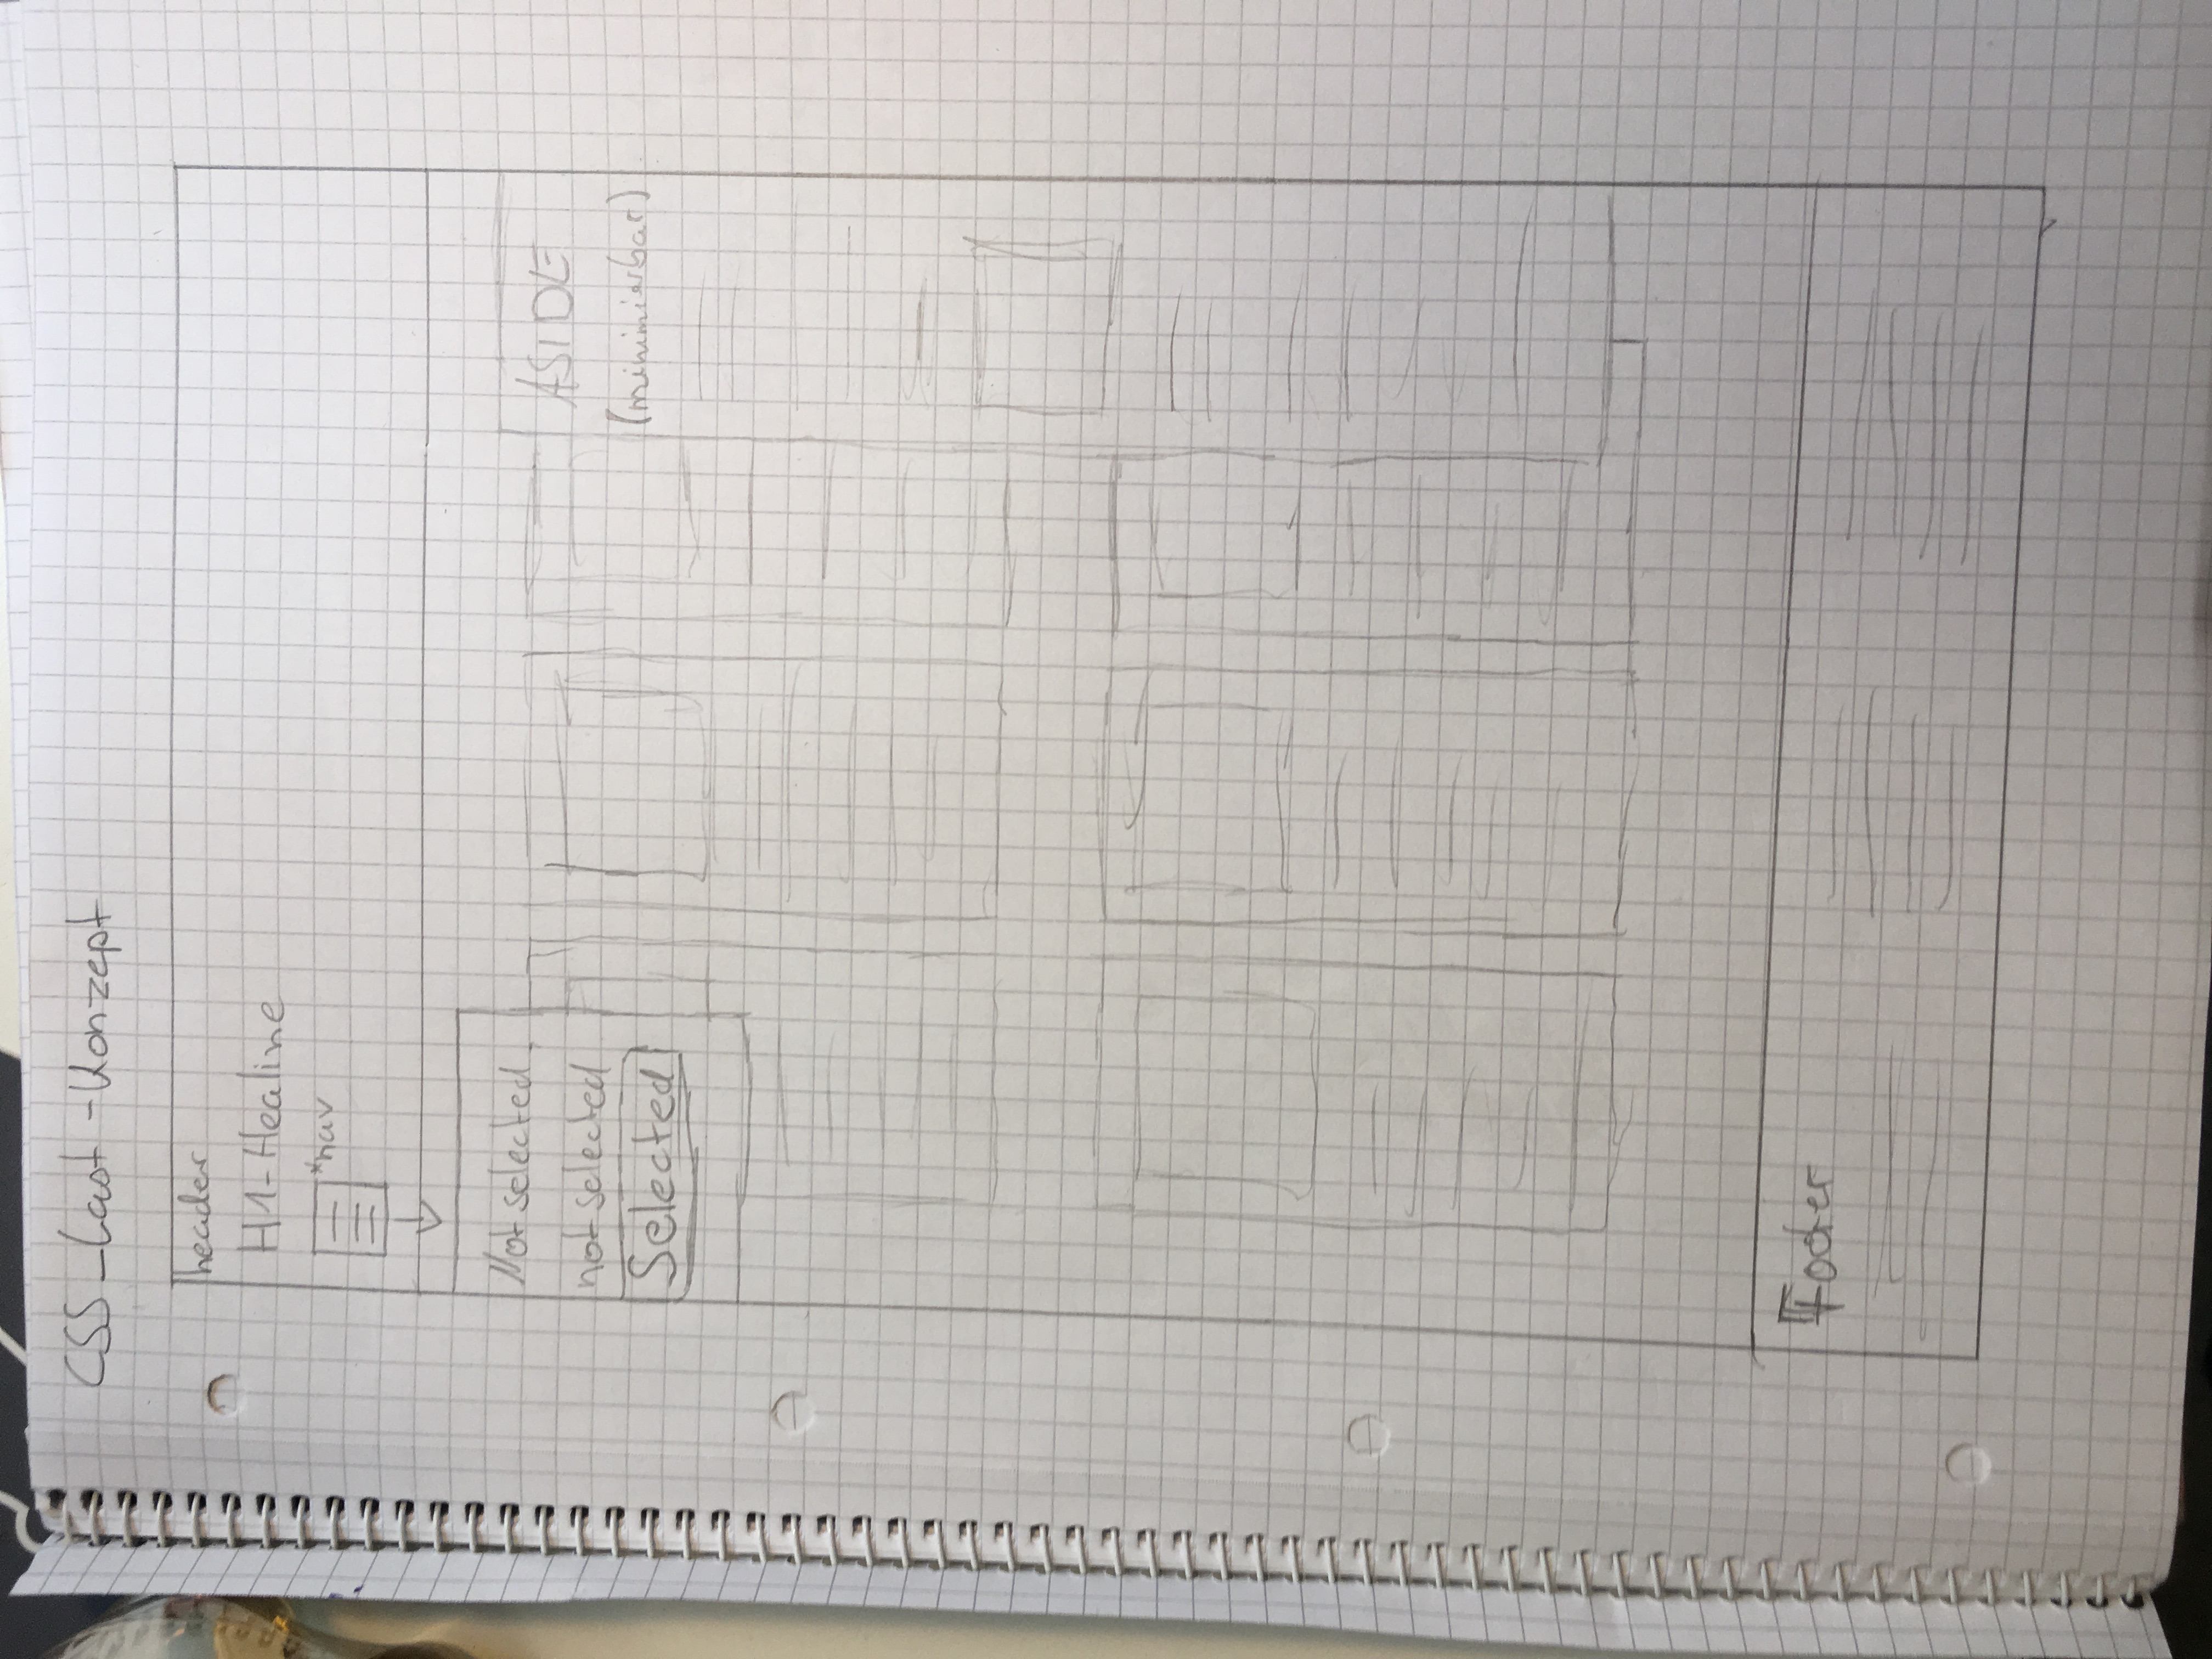 CSS-Last-Konzept
header
H1-Healine
*nav
Not selected
not selected
Selected
ASIDE
(minimierbar)
Footer